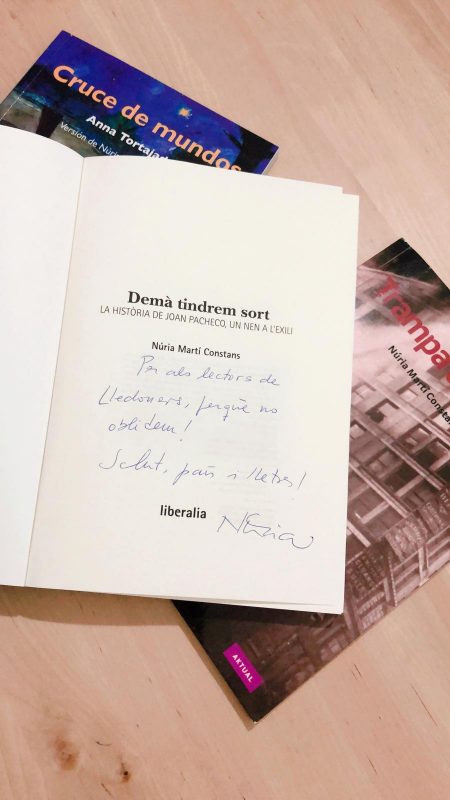 Cruce de mundos
Anna Tortajad
Versión de Núri
Demà tindrem sort
LA HISTÒRIA DE JOAN PACHECO, UN NEN A L'EXILI
Núria Martí Constans
Per als lectors de
Lledoners, perquè no
oblidem!
Salut, pan i lletres!
liberalia
Núria
Trampa
Núria Martí Constan
AKTUAL